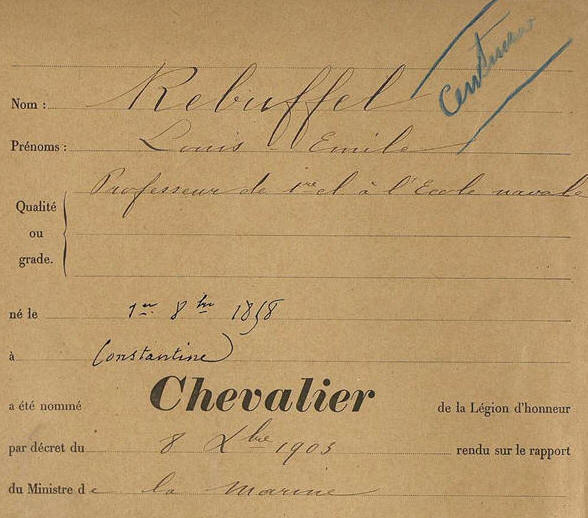 Centenaire
Nom : Rebuffel
Prénoms : Louis - Emile
Professeur de 1re cl à l'Ecole navale
Qualité
ou
grade.
né le 1er 8bre 1858
à Constantine
a été nommé Chevalier de la Légion d'honneur
par décret du 8 Xbre 1903 rendu sur le rapport
du Ministre de la marine